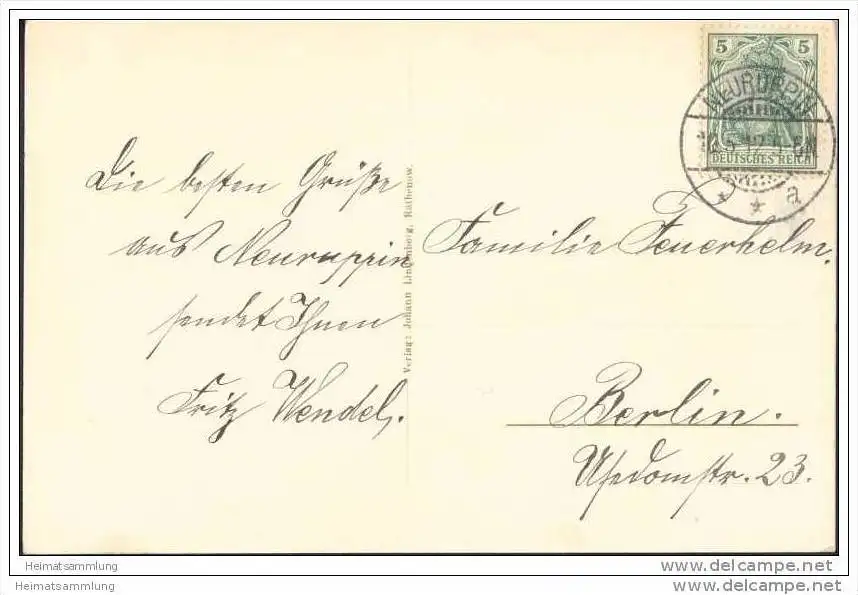 5 5
DEUTSCHES REICH
NEURUPPIN
a
Die besten Grüße
aus Neuruppin
sendet Ihnen
Fritz Wendel.
Verlag: Johann Lindenberg, Rathenow.
Familie Feuerhelm.
Berlin.
Usedomstr. 23.
Heimatsammlung
Heimatsammlung
delcampe.net
delcampe.net